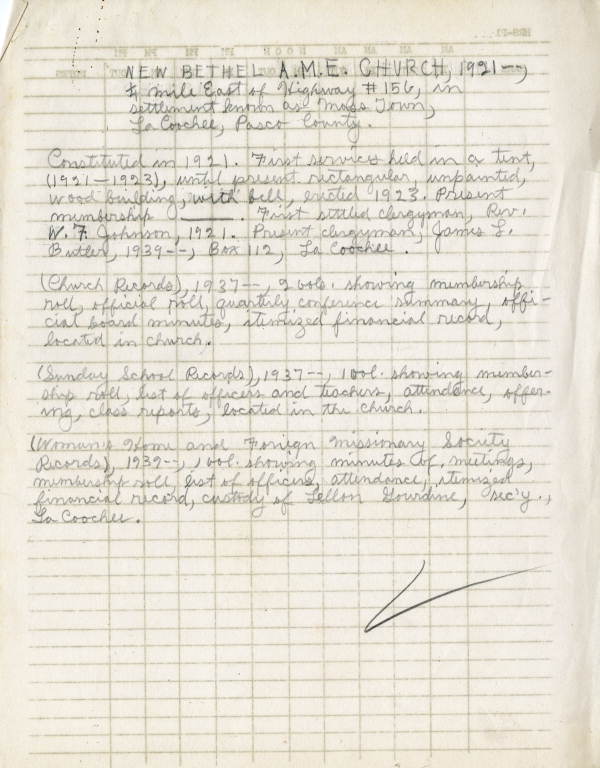 NEW BETHEL A.M.E. CHURCH, 1921--,
mile East of Highway # 156, in
settlement known as Moss Town,
La Coochee, Pasco County.
Constituted in 1921. First services held in a tent,
(1921-1923), until present rectangular, unpainted,
wood building, with bell, erected 1923. Present
membership ____. First settled clergyman, Rev.
W. F. Johnson, 1921. Present clergyman, James L.
Butler, 1939--, Box 112, La Coochee.
(Church Records), 1937--, 2 vols. showing membership
roll, official roll, quarterly conference summary, offi-
cial board minutes, itemized financial record,
located in church.
(Sunday School Records), 1937--, 1 vol. showing member-
ship roll, list of officers and teachers, attendance, offer-
ing, class reports, located in the church.
(Woman's Home and Foreign Missionary Society
Records), 1939--, 1 vol. showing minutes of meetings,
membership roll, list of officers, attendance, itemized
financial record, custody of Gourdine, sec'y.,
La Coochee.